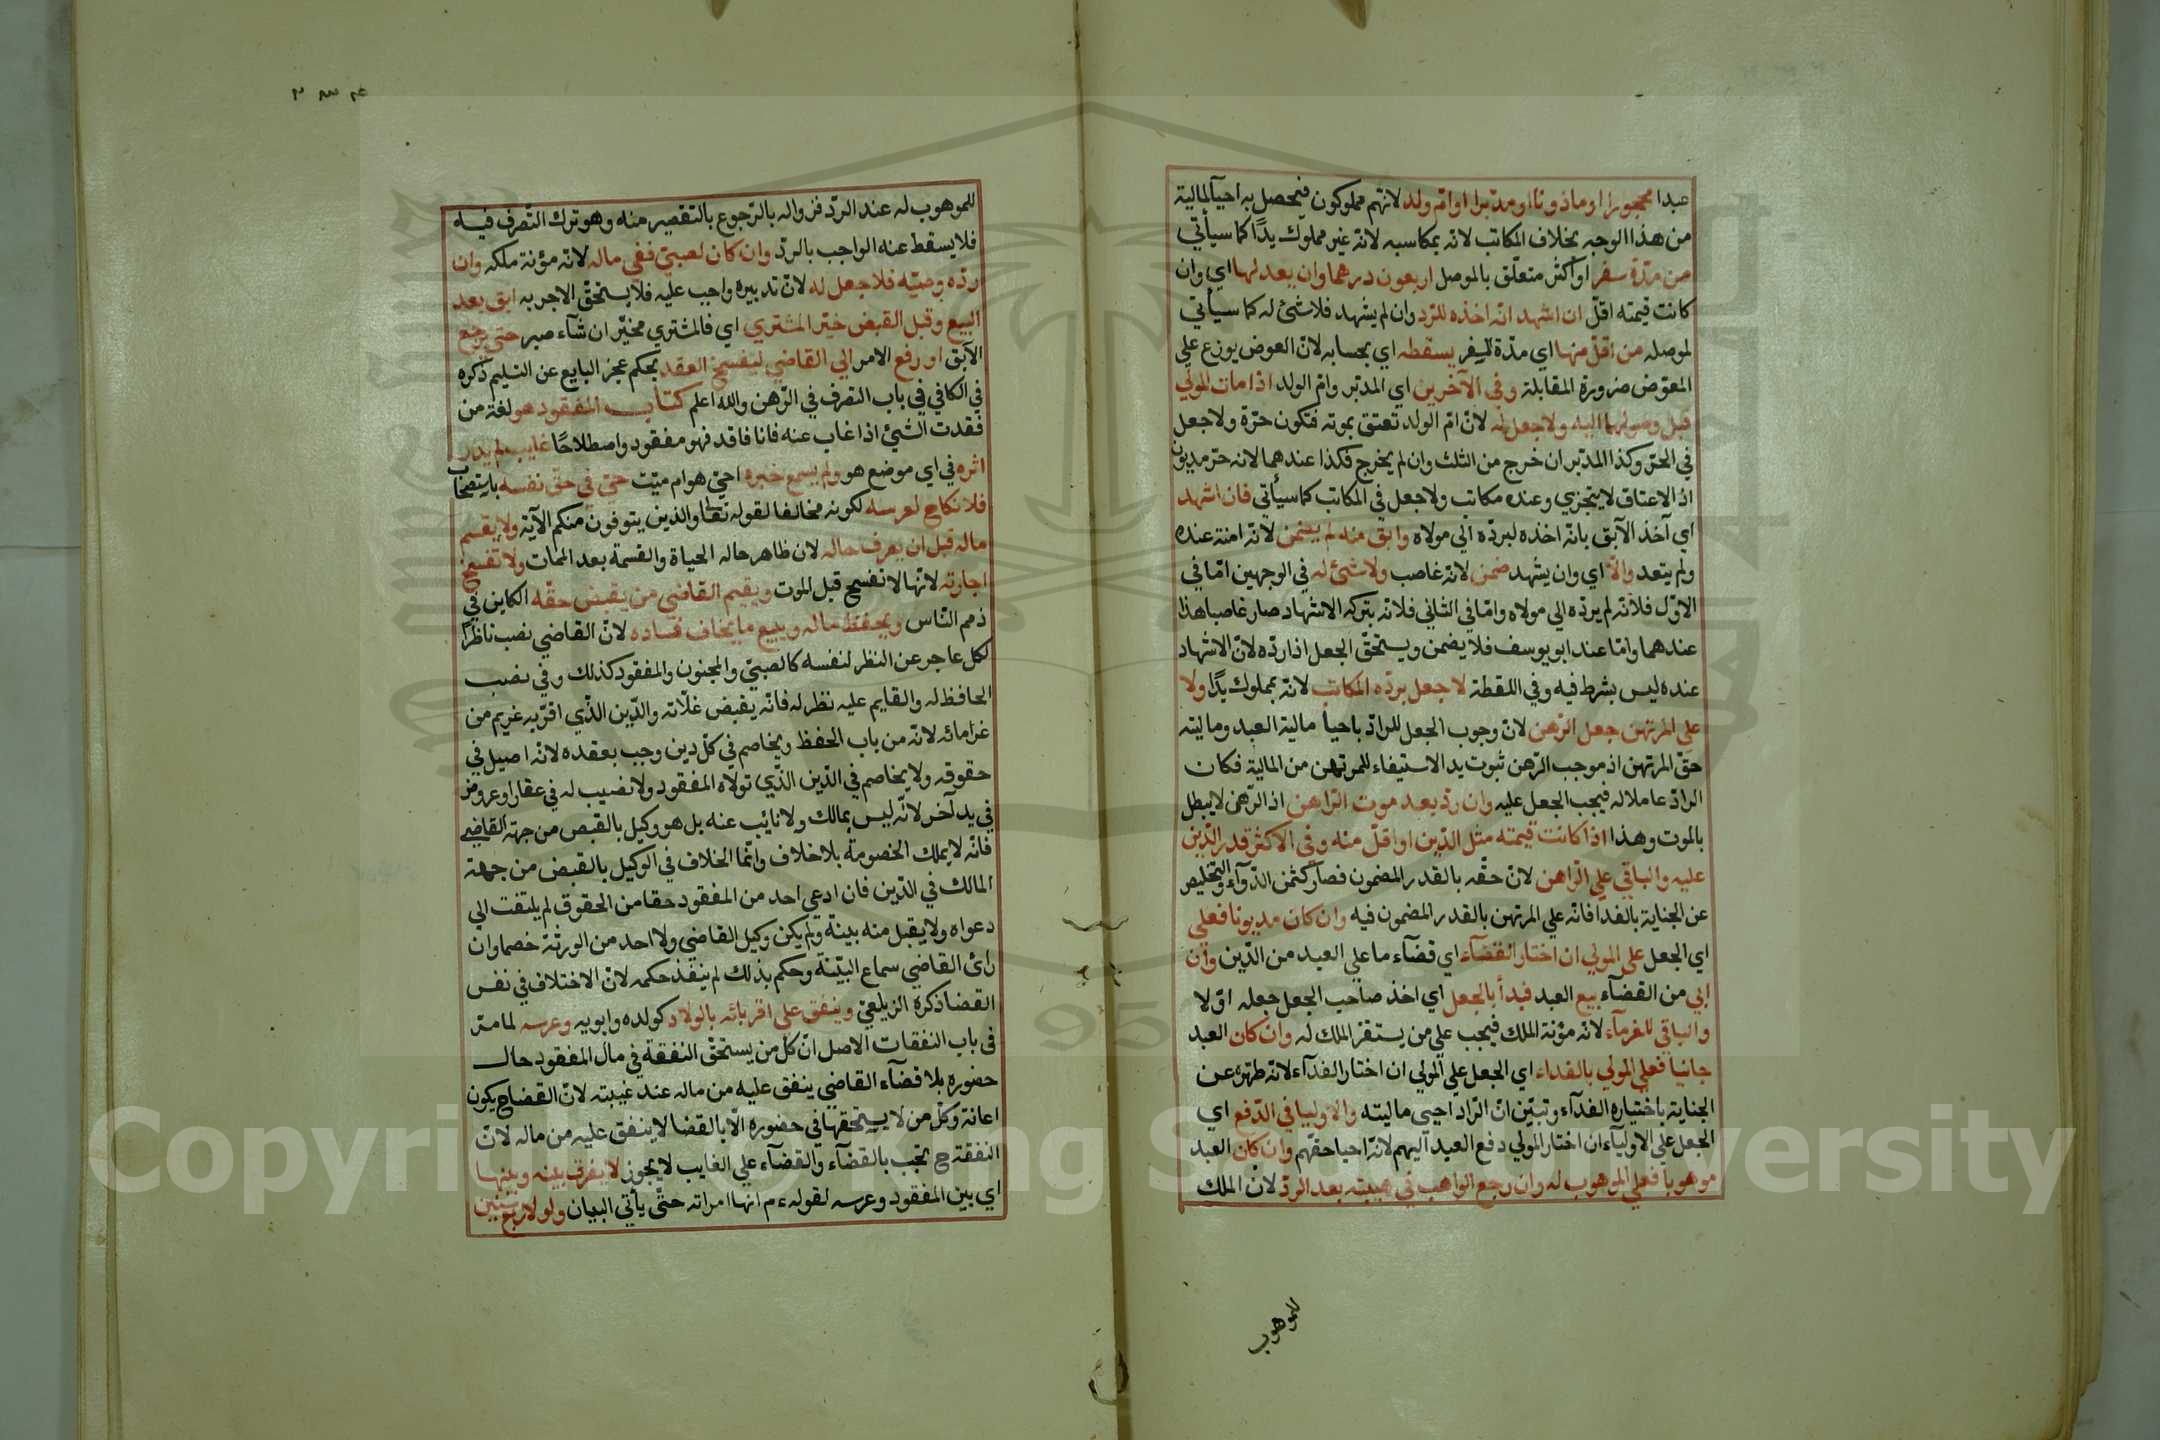 عبدا محجورا او ماذونا او مدبرا او ام ولد لانهم مملوكون فيحصل به احيآ المالية
من هذا الوجه بخلاف المكاتب لانه بمكاسبه لانه غير مملوك يدًا كما سيأتي
من مدّة سفر او اكثر متعلّق بالموصل اربعون درهما وان يعدلها اي وان
كانت قيمته اقلّ ان اشهد انّه اخذه للرّد وان لم يشهد فلا شئ له كما سيأتي
لموصله من اقلّ منها اي مدّة السفر بسقطه اي بحسابه لانّ العوض يوزع علي
المعوّض ضرورة المقابلة وفي الآخرين اي المدبّر وامّ الولد اذا مات المولي
قبل وصولهما اليه ولا جعل له لانّ امّ الولد تعتق بموته فتكون حرّة ولا جعل
في الحرّ وكذا المدبّر ان خرج من الثلث وان لم يخرج فكذا عندهما لانه حرّ مديون
اذ الاعتاق لا يتجزي وعنده مكاتب ولا جعل في المكاتب كما سيأتي فان اشهد
اي آخذ الآبق بانّه اخذه ليردّه الي مولاه وابق منه لم يضمن لانّه امنة عنده
ولم يتعد والّا اي وان يشهد ضمن لانّه غاصب ولا شئ له في الوجهين امّا في
الاوّل فلانّه لم يردّه الي مولاه وامّا في الثاني فلانّه بتركه الاشهاد صار غاصبا هذا
عندهما وامّا عند ابو يوسف فلا يضمن ويستحقّ الجعل اذا ردّه لانّ الاشهاد
عنده ليس بشرط فيه وفي اللقطة لا جعل بردّه المكاتب لانّه بمملوك يدًا ولا
علي المرتهن جعل الرّهن لانّ وجوب الجعل للرادّ باحيأ مالية العبد وماليته
حقّ المرتهن اذ موجب الرّهن ثبوت يد الاستيفاء للمرتهن من المالية فكان
الرادّ عاملا له فيجب الجعل عليه وان ردّ بعد موت الرّاهن اذ الرّهن لا يبطل
بالموت وهذا اذا كانت قيمته مثل الدّين او اقلّ منه وفي الاكثر قدر الدّين
عليه والباقي علي الرّاهن لانّ حقّه بالقدر المضمون فصار كثمن الدّوآء والتخليص
عن الجناية بالفدا فانّه علي المرتهن بالقدر المضمون فيه وان كان مديونا فعلي
اي الجعل علي المولي ان اختار القضآء اي قضآء ما علي العبد من الدّين وان
ابي من القضآء بيع العبد فبدأ بالجعل اي اخذ صاحب الجعل جعله اوّلا
والباقي للغرمآء لانّه مؤنة الملك فيجب علي من يستقرّ الملك له وان كان العبد
جانيا فعلي المولي بالفداء اي الجعل علي المولي ان اختار الفدآء لانّه طهّره عن
الجناية باختياره الفدآء وتبيّن انّ الرّاد احيي ماليته والاوليا في الدّفع اي
الجعل علي الاوليآء ان اختار المولي دفع العبد اليهم لانّه احيا حقّهم وان كان العبد
موهوبا فعلي الموهوب له وان رجع الواهب في هبته بعد الردّ لانّ الملك
للموهوب
للموهوب له عند الردّ فزواله بالرّجوع بالتقصير منه وهو ترك التّصرف فيه
فلا يسقط عنه الواجب بالردّ وان كان لصبيّ ففي ماله لانّه مؤنة ملكه وان
ردّه وصيّه فلا جعل له لانّ تدبيره واجب عليه فلا يستحقّ الاجر به ابق بعد
البيع وقبل القبض خيّر المشتري اي فالمشتري مخيّر ان شآء صبر حتي يرجع
الآبق او رفع الامر الي القاضي ليفسخ العقد بحكم عجز البايع عن التسليم ذكره
في الكافي في باب التصرف في الرّهن والله اعلم كتاب المفقود هو لغة من
فقدت الشئ اذا غاب عنه فانا فاقد فهو مفقود واصطلاحًا غايب لم يدر
اثره في اي موضع هو ولم يسمع خبره احيّ هو ام ميّت حيّ في حقّ نفسه باستصحاب
فلا نكاح لعرسه لكونه مخالفا لقوله تعالى والذين يتوفون منكم الآية ولا يقسم
ماله قبل ان يعرف حاله لان ظاهر حاله الحياة والقسمة بعد الممات ولا تفسخ
اجارته لانّها لا تفسخ قبل الموت ويقيم القاضي من يقبض حقّه الكاين في
ذمم النّاس ويحفظ ماله ويبيع ما يخاف فساده لانّ القاضي نصب ناظرًا
لكل عاجر عن النظر لنفسه كالصبيّ والمجنون والمفقود كذلك وفي نصب
الحافظ له والقايم عليه نظر له فانّه يقبض غلّاته والدّين الذّي اقرّ به غريم من
غرامائه لانّه من باب الحفظ ويخاصم في كلّ دين وجب بعقده لانّه اصيل في
حقوقه ولا يخاصم في الدّين الذّي تولاه المفقود ولا نصيب له في عقار او عروض
في يد آخر لانّه ليس بمالك ولا نايب عنه بل هو وكيل بالقبض من جهة القاضي
فانّه لا يملك الخصومة بلا خلاف وانّما الخلاف في الوكيل بالقبض من جهة
المالك في الدّين فان ادعي احد من المفقود حقا من الحقوق لم يلتفت الي
دعواه ولا يقبل منه بينة ولم يكن وكيل القاضي ولا احد من الورثة خصما وان
رائ القاضي سماع البيّنة وحكم بذلك لم ينفذ حكمه لانّ الاختلاف في نفس
القضا ذكره الزيلعيّ وينفق علي اقربائه بالولاد كولده وابويه وعرسه لما مرّ
في باب النفقات الاصل انّ كلّ من يستحقّ النفقة في مال المفقود حال
حضوره بلا قضآء القاضي ينفق عليه من ماله عند غيبته لانّ القضا ح يكون
اعانة وكلّ من لا يستحقها في حضوره الّا بالقضا لا ينفق عليه من ماله لانّ
النفقة ح تجب بالقضآء والقضآء علي الغايب لا يجوز لا يفرق بينه وبينها
اي بين المفقود وعرسه لقوله ءم انها امراته حتّي يأتي البيان ولو لاربع سنين
Copyright © King Saud University